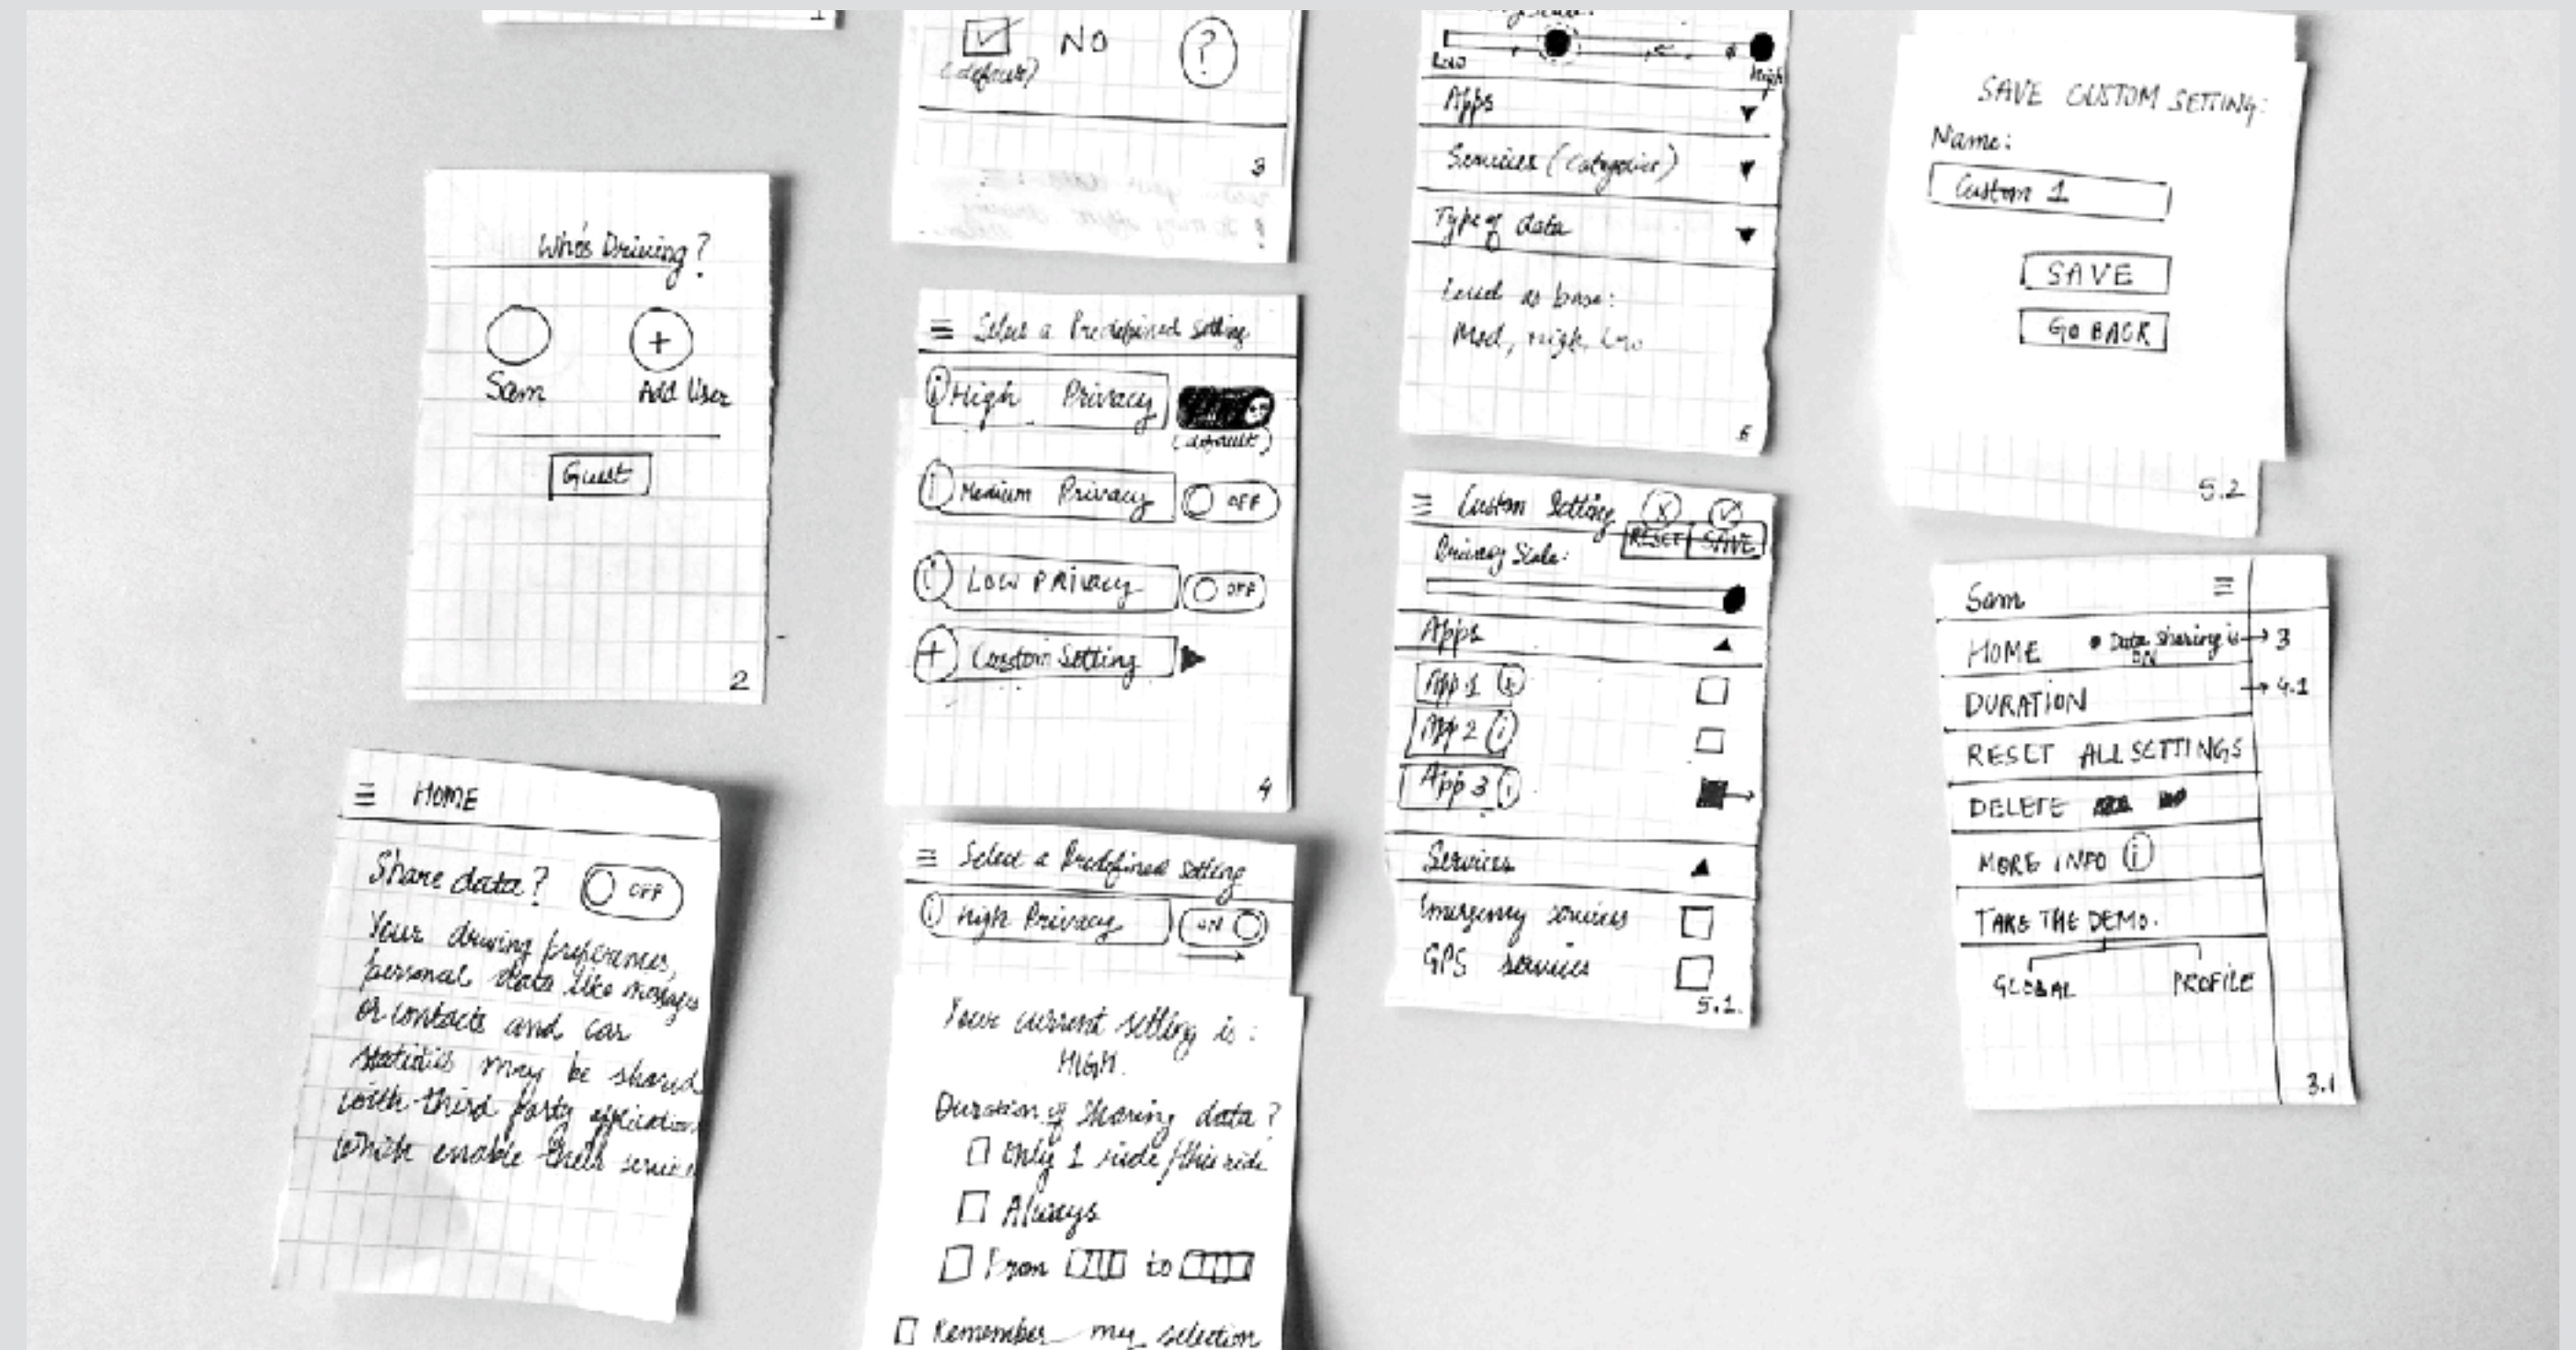 1
Who's Driving?
+
Sam
Add User
Guest
2
HOME
Share data?
OFF
Your driving preferences,
personal data like messages
or contacts and car
statistics may be shared
with third party applications
which enable their service
NO
?
3
Select a Predefined Setting
i High Privacy
(default)
i Medium Privacy
OFF
i LOW PRIVACY
OFF
+ Custom Setting
4
Select a Predefined Setting
i High Privacy
ON
Your current setting is:
HIGH.
Duration of Sharing data?
Only 1 ride/this ride
Always
From to
Remember my selection
Low
High
Apps
Services (Categories)
Type of data
as base:
Med, High, Low
Custom Setting
X
RESET SAVE
Privacy Scale:
Apps
App 1 i
App 2 i
App 3 i
Services
Emergency services
GPS services
5.1.
SAVE CUSTOM SETTING:
Name:
Custom 1
SAVE
GO BACK
5.2
Sam
HOME
• Data sharing is → 3
ON
DURATION → 4.1
RESET ALL SETTINGS
DELETE
MORE INFO i
TAKE THE DEMO.
GLOBAL
PROFILE
3.1